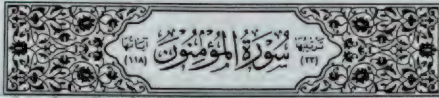 ترتيبها (٢٣) سُورَةُ المُؤْمِنُون آياتها (١١٨)